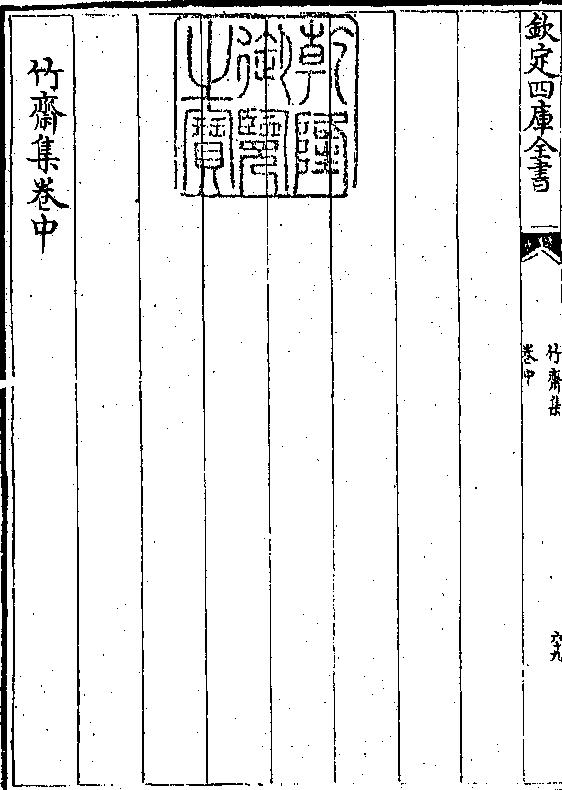 欽定四庫全書
竹齋集
卷中
六十九
乾隆
御覽
之寶
竹齋集卷中